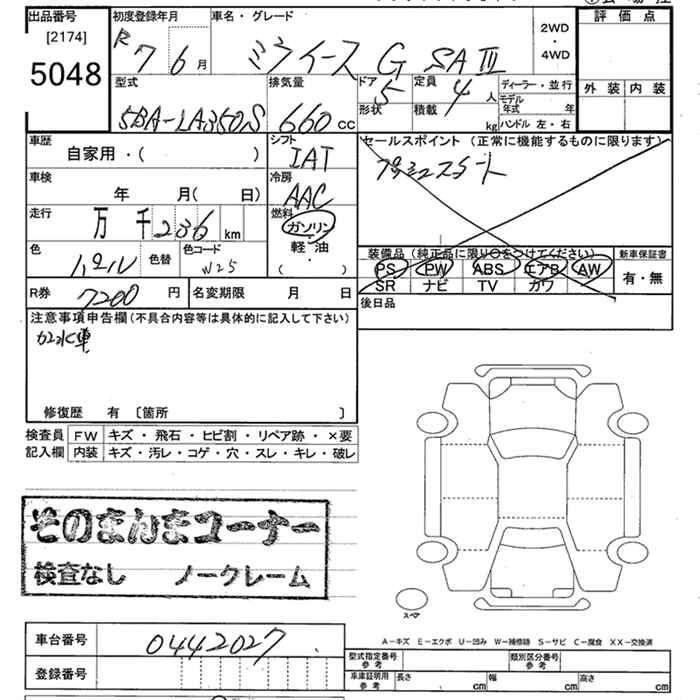 出品番号
[2174]
5048
初度登録年月
R 7 6月
車名・グレード
ミライース G SAⅢ
2WD
・
4WD
評価点
外装 内装
型式
5BA-LA350S
排気量
660 cc
ドア 5
形状
定員 4人
積載 kg
ディーラー・並行
モデル年式 年
ハンドル 左・右
車歴
自家用・( )
シフト
IAT
車検
年 月( 日)
冷房
AAC
走行
万 千 236 km
燃料
ガソリン
軽・油
( )
色
パール
色替
色コード
W25
R券
7200 円
名変期限 月 日
セールスポイント (正常に機能するものに限ります)
装備品 (純正品に限り○をつけてください)
PS PW ABS エアB AW
SR ナビ TV カワ
新車保証書
有・無
後日品
注意事項申告欄(不具合内容等は具体的に記入して下さい)
冠水車
修復歴 有 〔箇所 〕
検査員 FW キズ・飛石・ヒビ割・リペア跡・×要
記入欄 内装 キズ・汚レ・コゲ・穴・スレ・キレ・破レ
そのまんまコーナー
検査なし ノークレーム
スペア
A-キズ E-エクボ U-凹み W-補修跡 S-サビ C-腐食 XX-交換済
車台番号 0442027
登録番号
型式指定番号 参考
類別区分番号 参考
車庫証明用 参考 長さ cm 幅 cm 高さ cm